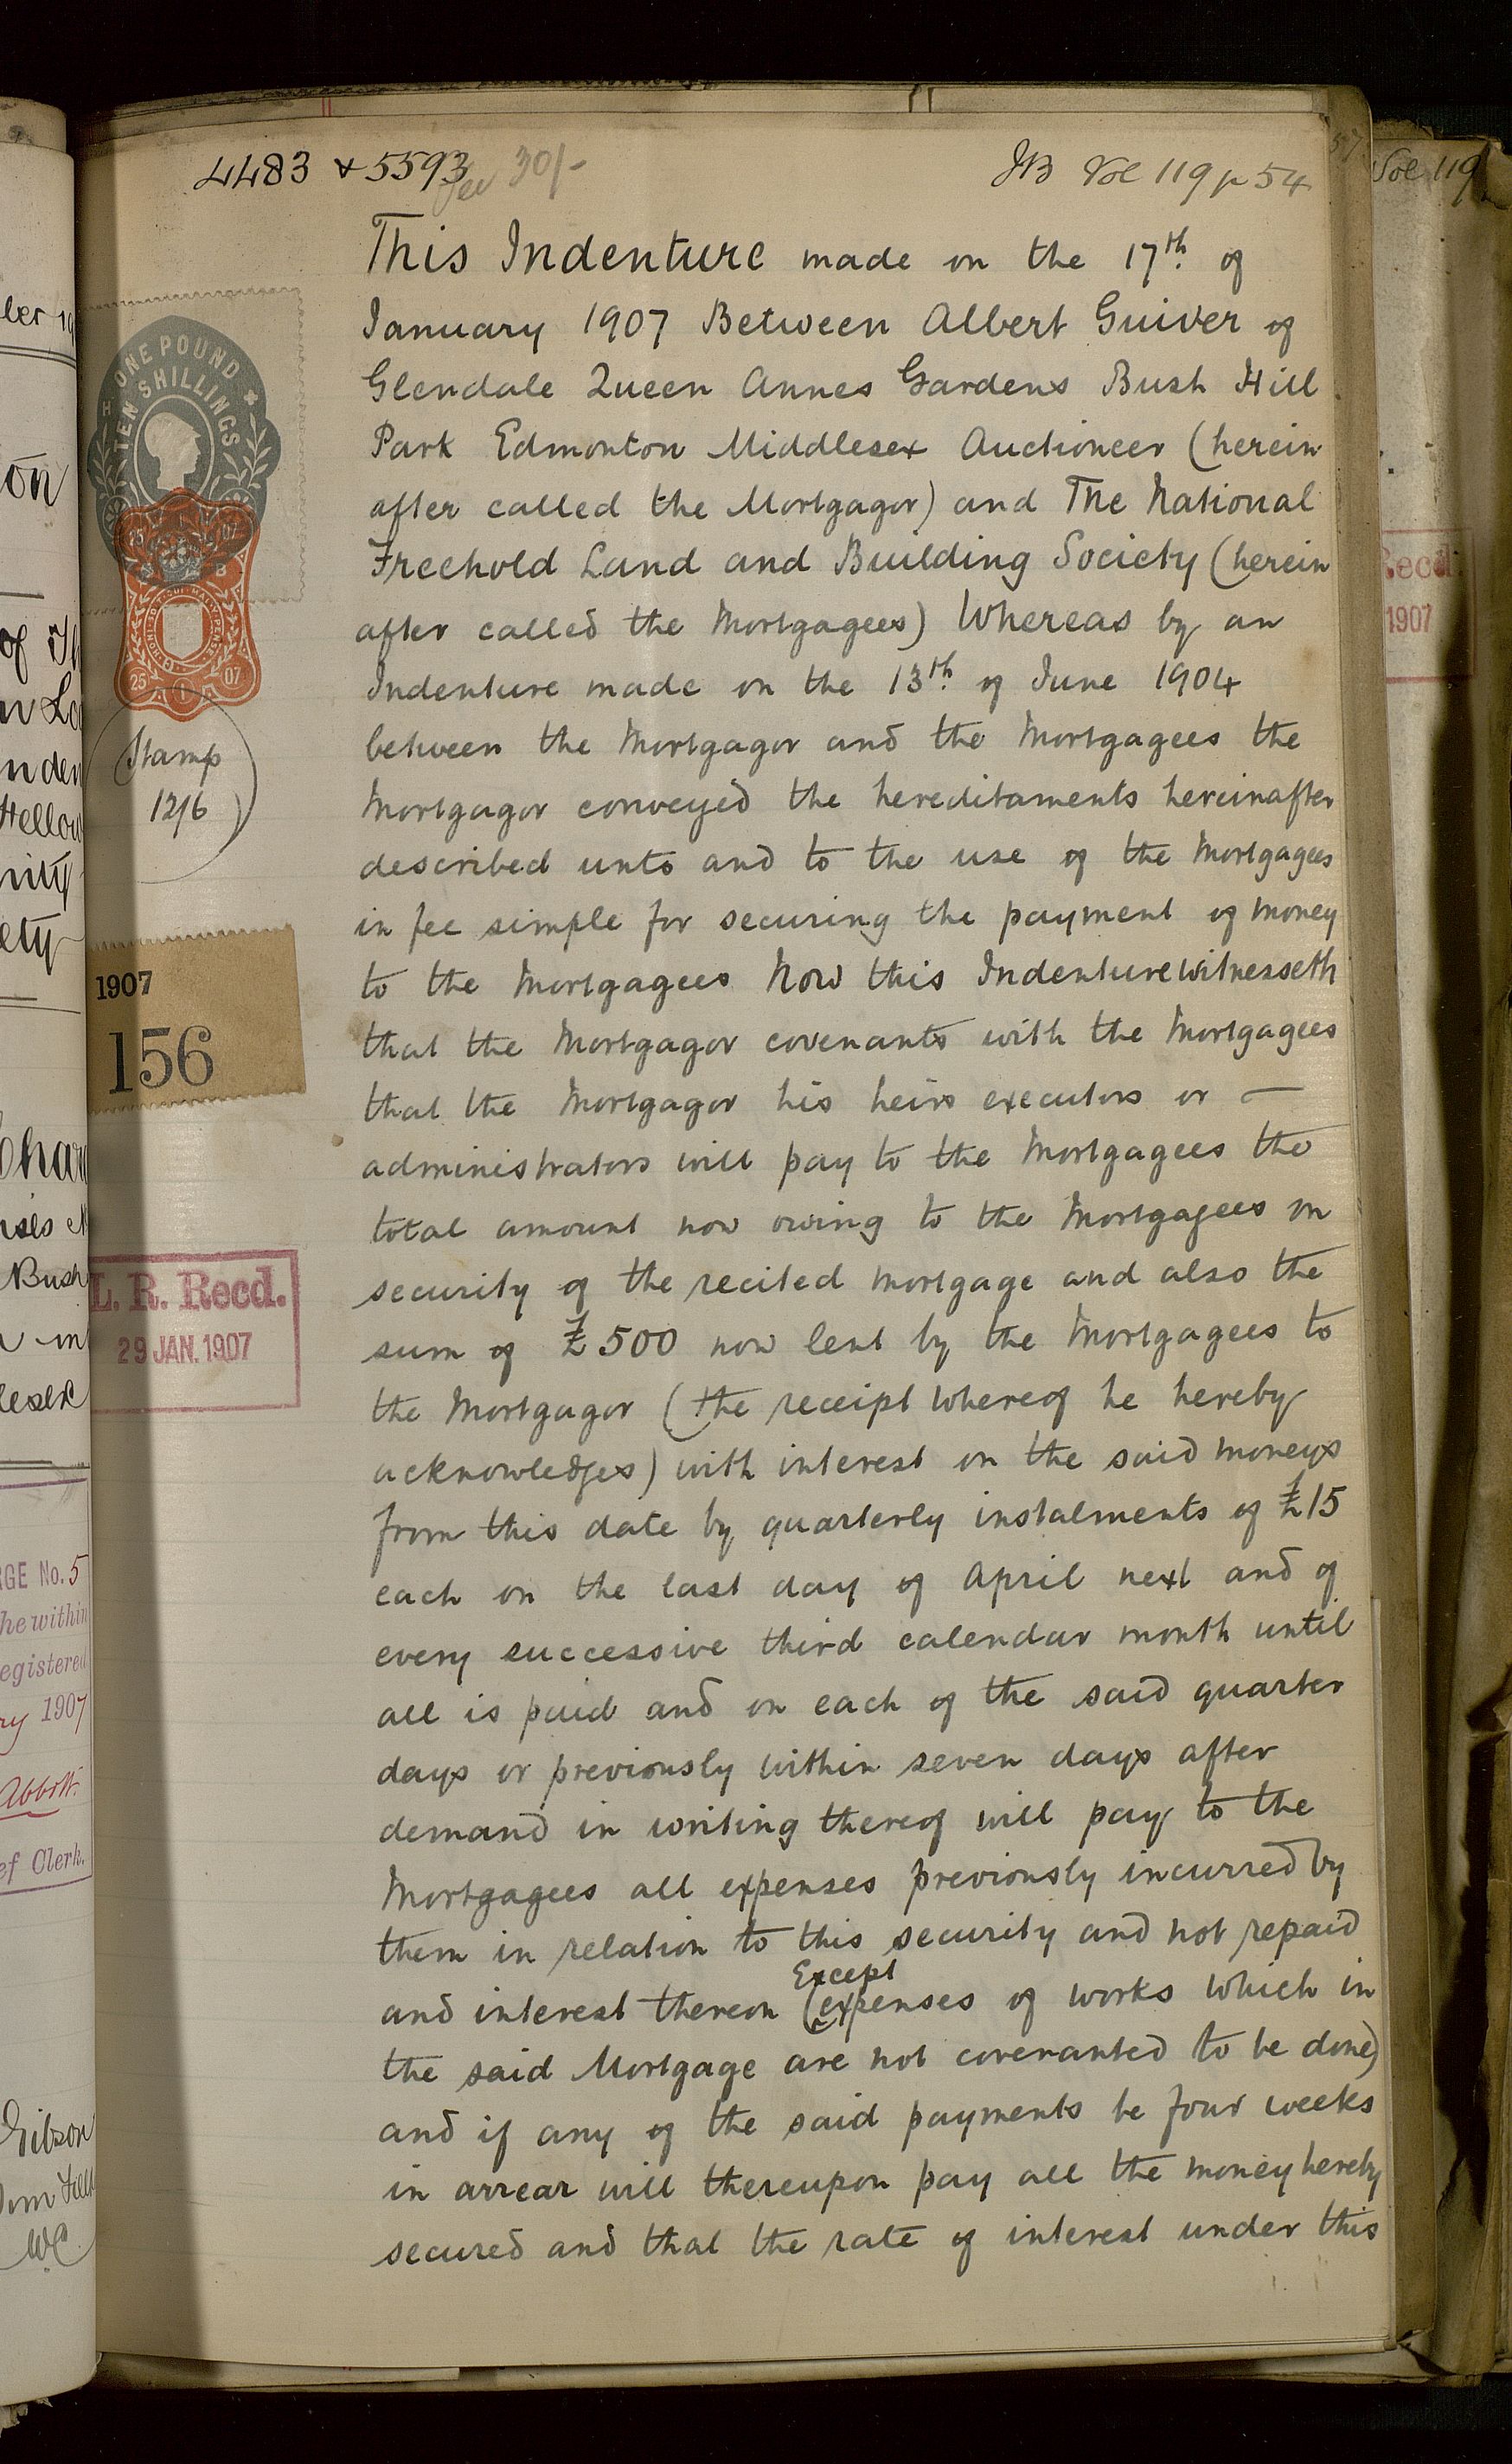 4483 & 5593
fee 30/-
Vol 119 p 54
This Indenture made on the 17th. of
January 1907 Between Albert Guiver of
Glendale Queen Annes Gardens Bush Hill
Park Edmonton Middlesex Auctioneer (herein
after called the Mortgagor) and The National
Freehold Land and Building Society (herein
after called the Mortgagees) Whereas by an
Indenture made on the 13th. of June 1904
between the Mortgagor and the Mortgagees the
Mortgagor conveyed the hereditaments hereinafter
described unto and to the use of the Mortgagees
in fee simple for securing the payment of money
to the Mortgagees Now this Indenture Witnesseth
that the Mortgagor covenants with the Mortgagees
that the Mortgagor his heirs executors or —
administrators will pay to the Mortgagees the
total amount now owing to the Mortgagees on
security of the recited mortgage and also the
sum of £500 now lent by the Mortgagees to
the Mortgagor (the receipt whereof he hereby
acknowledges) with interest on the said moneys
from this date by quarterly instalments of £15
each on the last day of April next and of
every successive third calendar month until
all is paid and on each of the said quarter
days or previously within seven days after
demand in writing thereof will pay to the
Mortgagees all expenses previously incurred by
them in relation to this security and not repaid
Except
and interest thereon (expenses of works which in
the said Mortgage are not covenanted to be done)
and if any of the said payments be four weeks
in arrear will thereupon pay all the money hereby
secured and that the rate of interest under this
ONE POUND
TEN SHILLINGS
25 1 07
Stamp
12/6
1907
156
L. R. Recd.
29 JAN. 1907
Vol 119
Recd.
1907
RGE No. 5
he within
egistered
ry 1907
Abbott.
ef Clerk.
Gibson